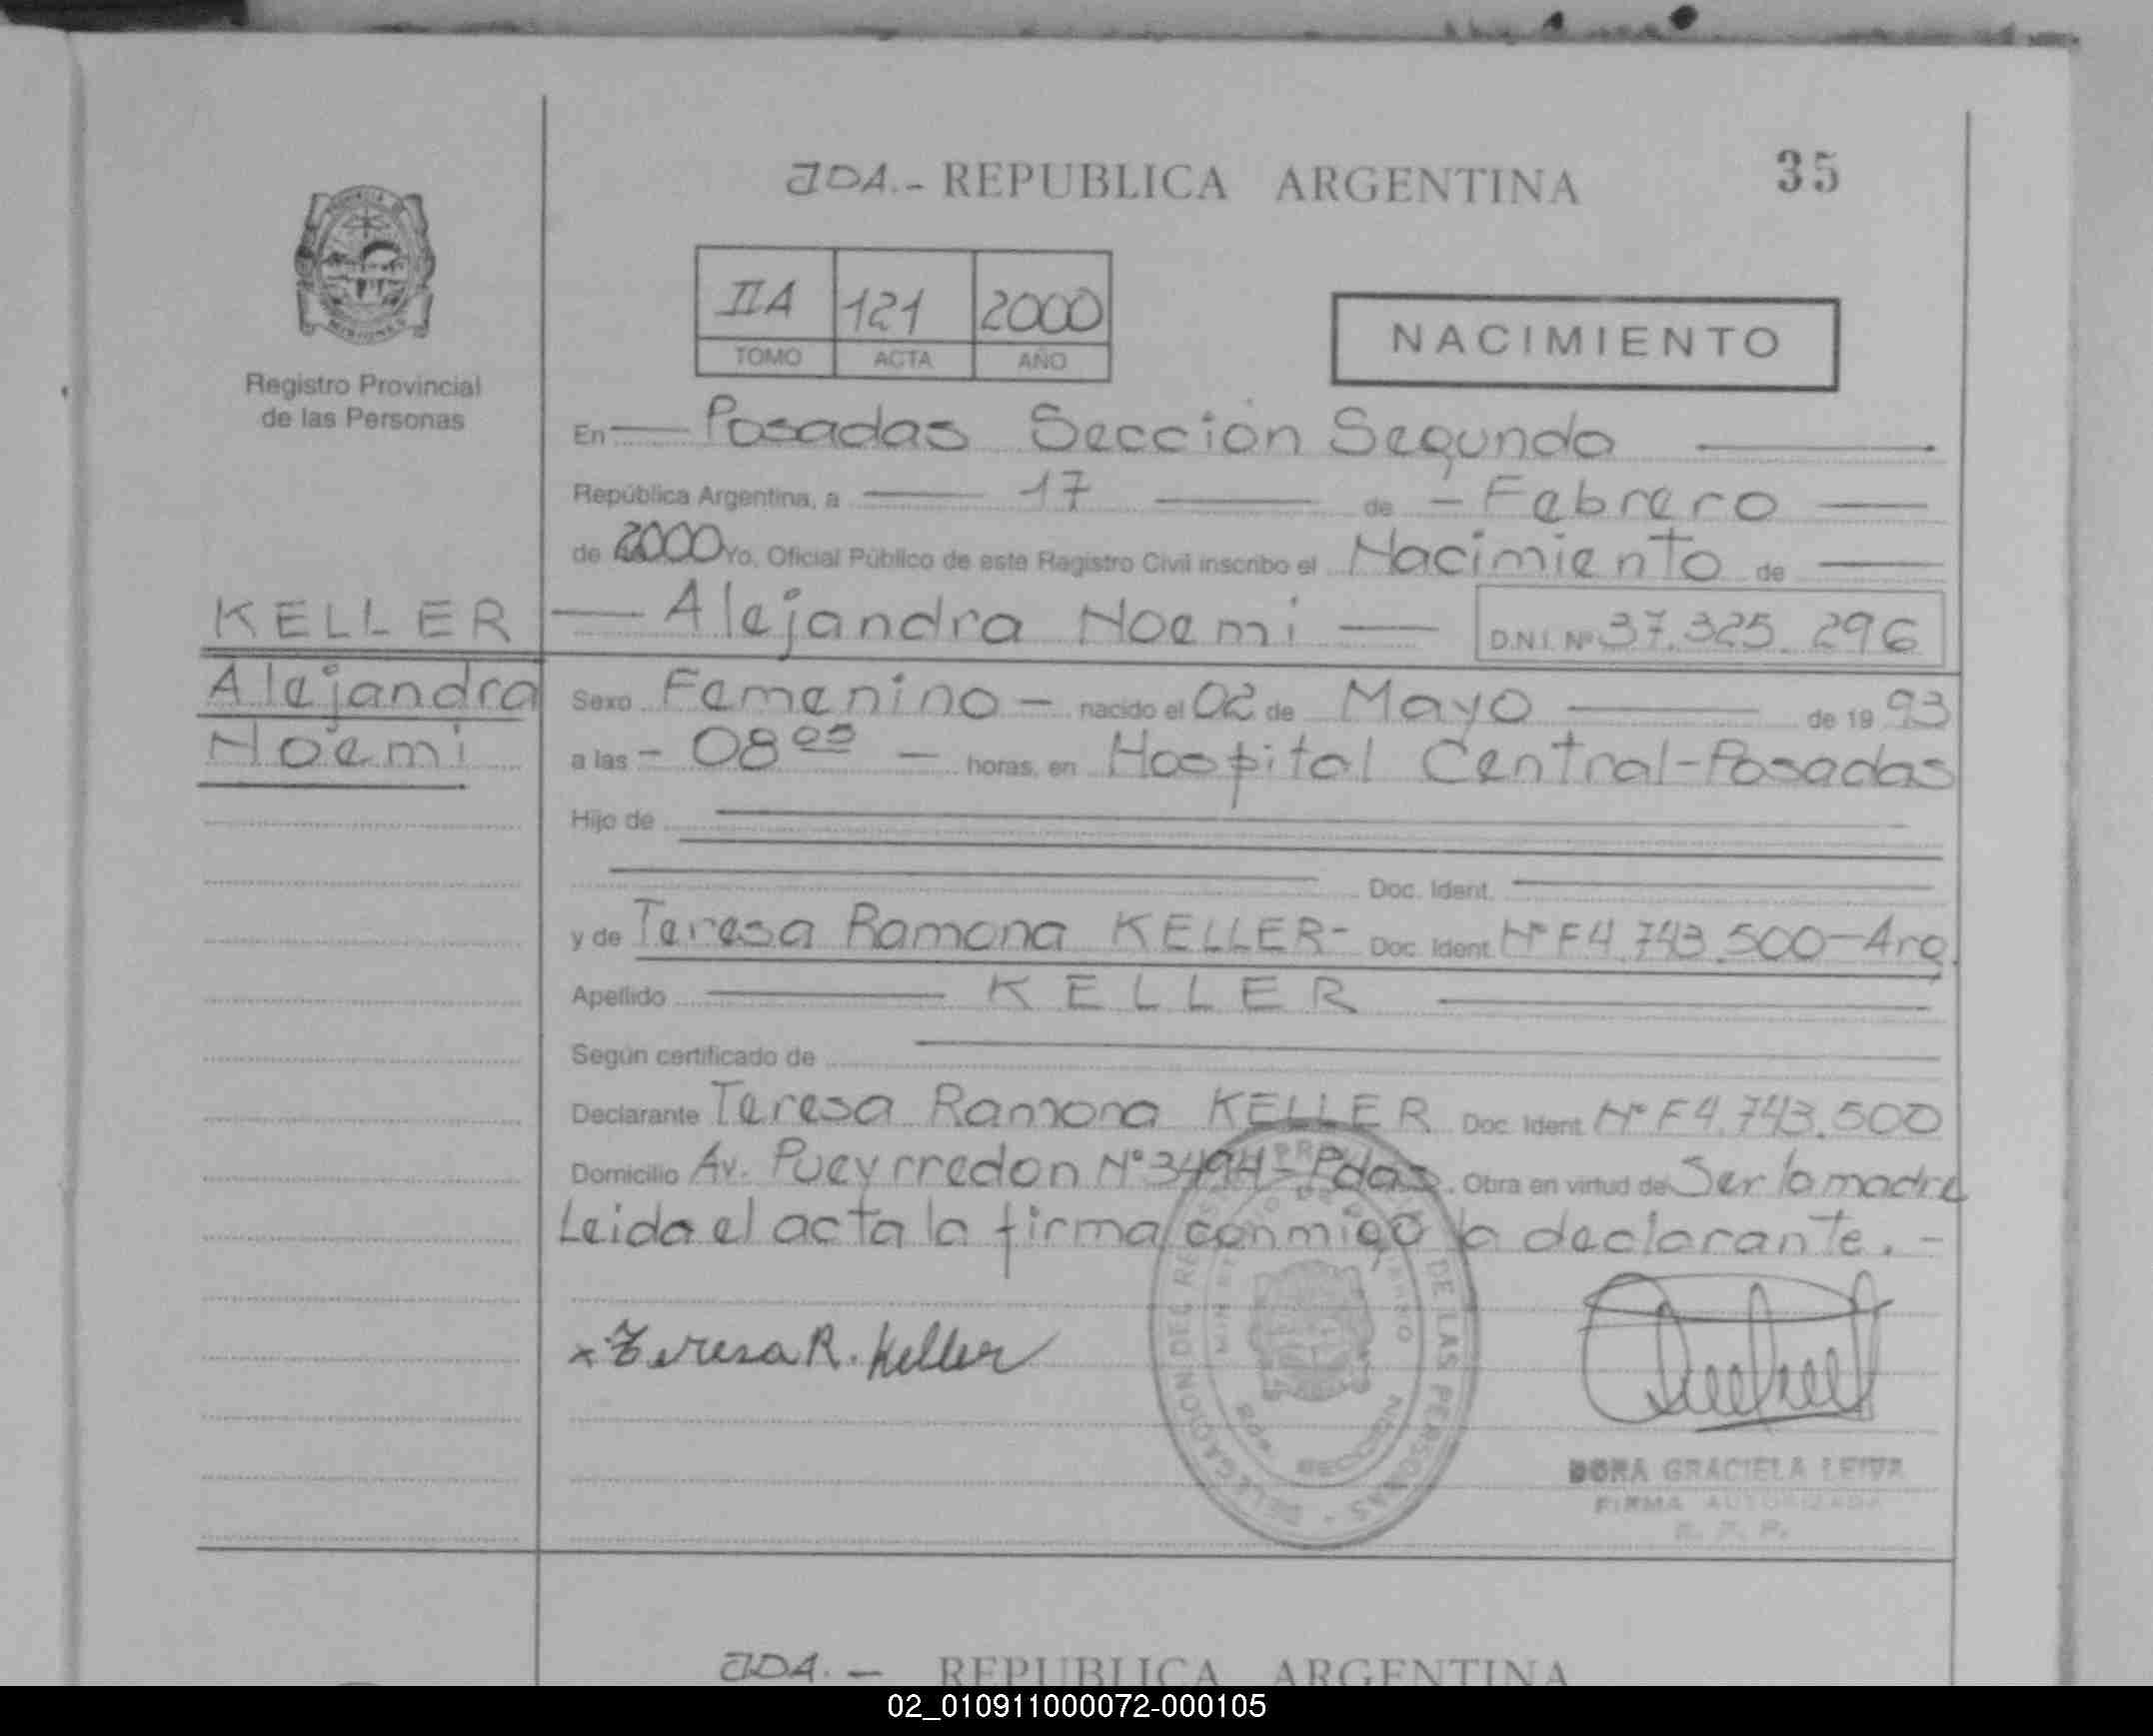 JDA.- REPUBLICA ARGENTINA
35
IIA 121 2000
TOMO ACTA AÑO
NACIMIENTO
Registro Provincial
de las Personas
En Posadas Sección Segunda
República Argentina, a 17 de - Febrero
de 2000 Yo, Oficial Público de este Registro Civil inscribo el Nacimiento de
KELLER
Alejandra Noemi
D.N.I. Nº 37.325.296
Alejandra
Noemi
Sexo Femenino - nacido el 02 de Mayo de 19 93
a las - 08 05 - horas, en Hospital Central-Posadas
Hijo de
Doc. Ident.
y de Teresa Ramona KELLER- Doc. Ident. Nº F4.743.500-Arg.
Apellido KELLER
Según certificado de
Declarante Teresa Ramona KELLER Doc. Ident. Nº F4.743.500
Domicilio Av. Pueyrredon Nº 3494-Pdas. Obra en virtud de Ser la madre
Leida el acta la firma conmigo la declarante.-
x Teresa R. Keller
DELEGACION DEL DE LAS PERSONAS
DORA GRACIELA LEIVA
FIRMA AUTORIZADA
R. P. P.
JDA.- REPUBLICA ARGENTINA
02_010911000072-000105